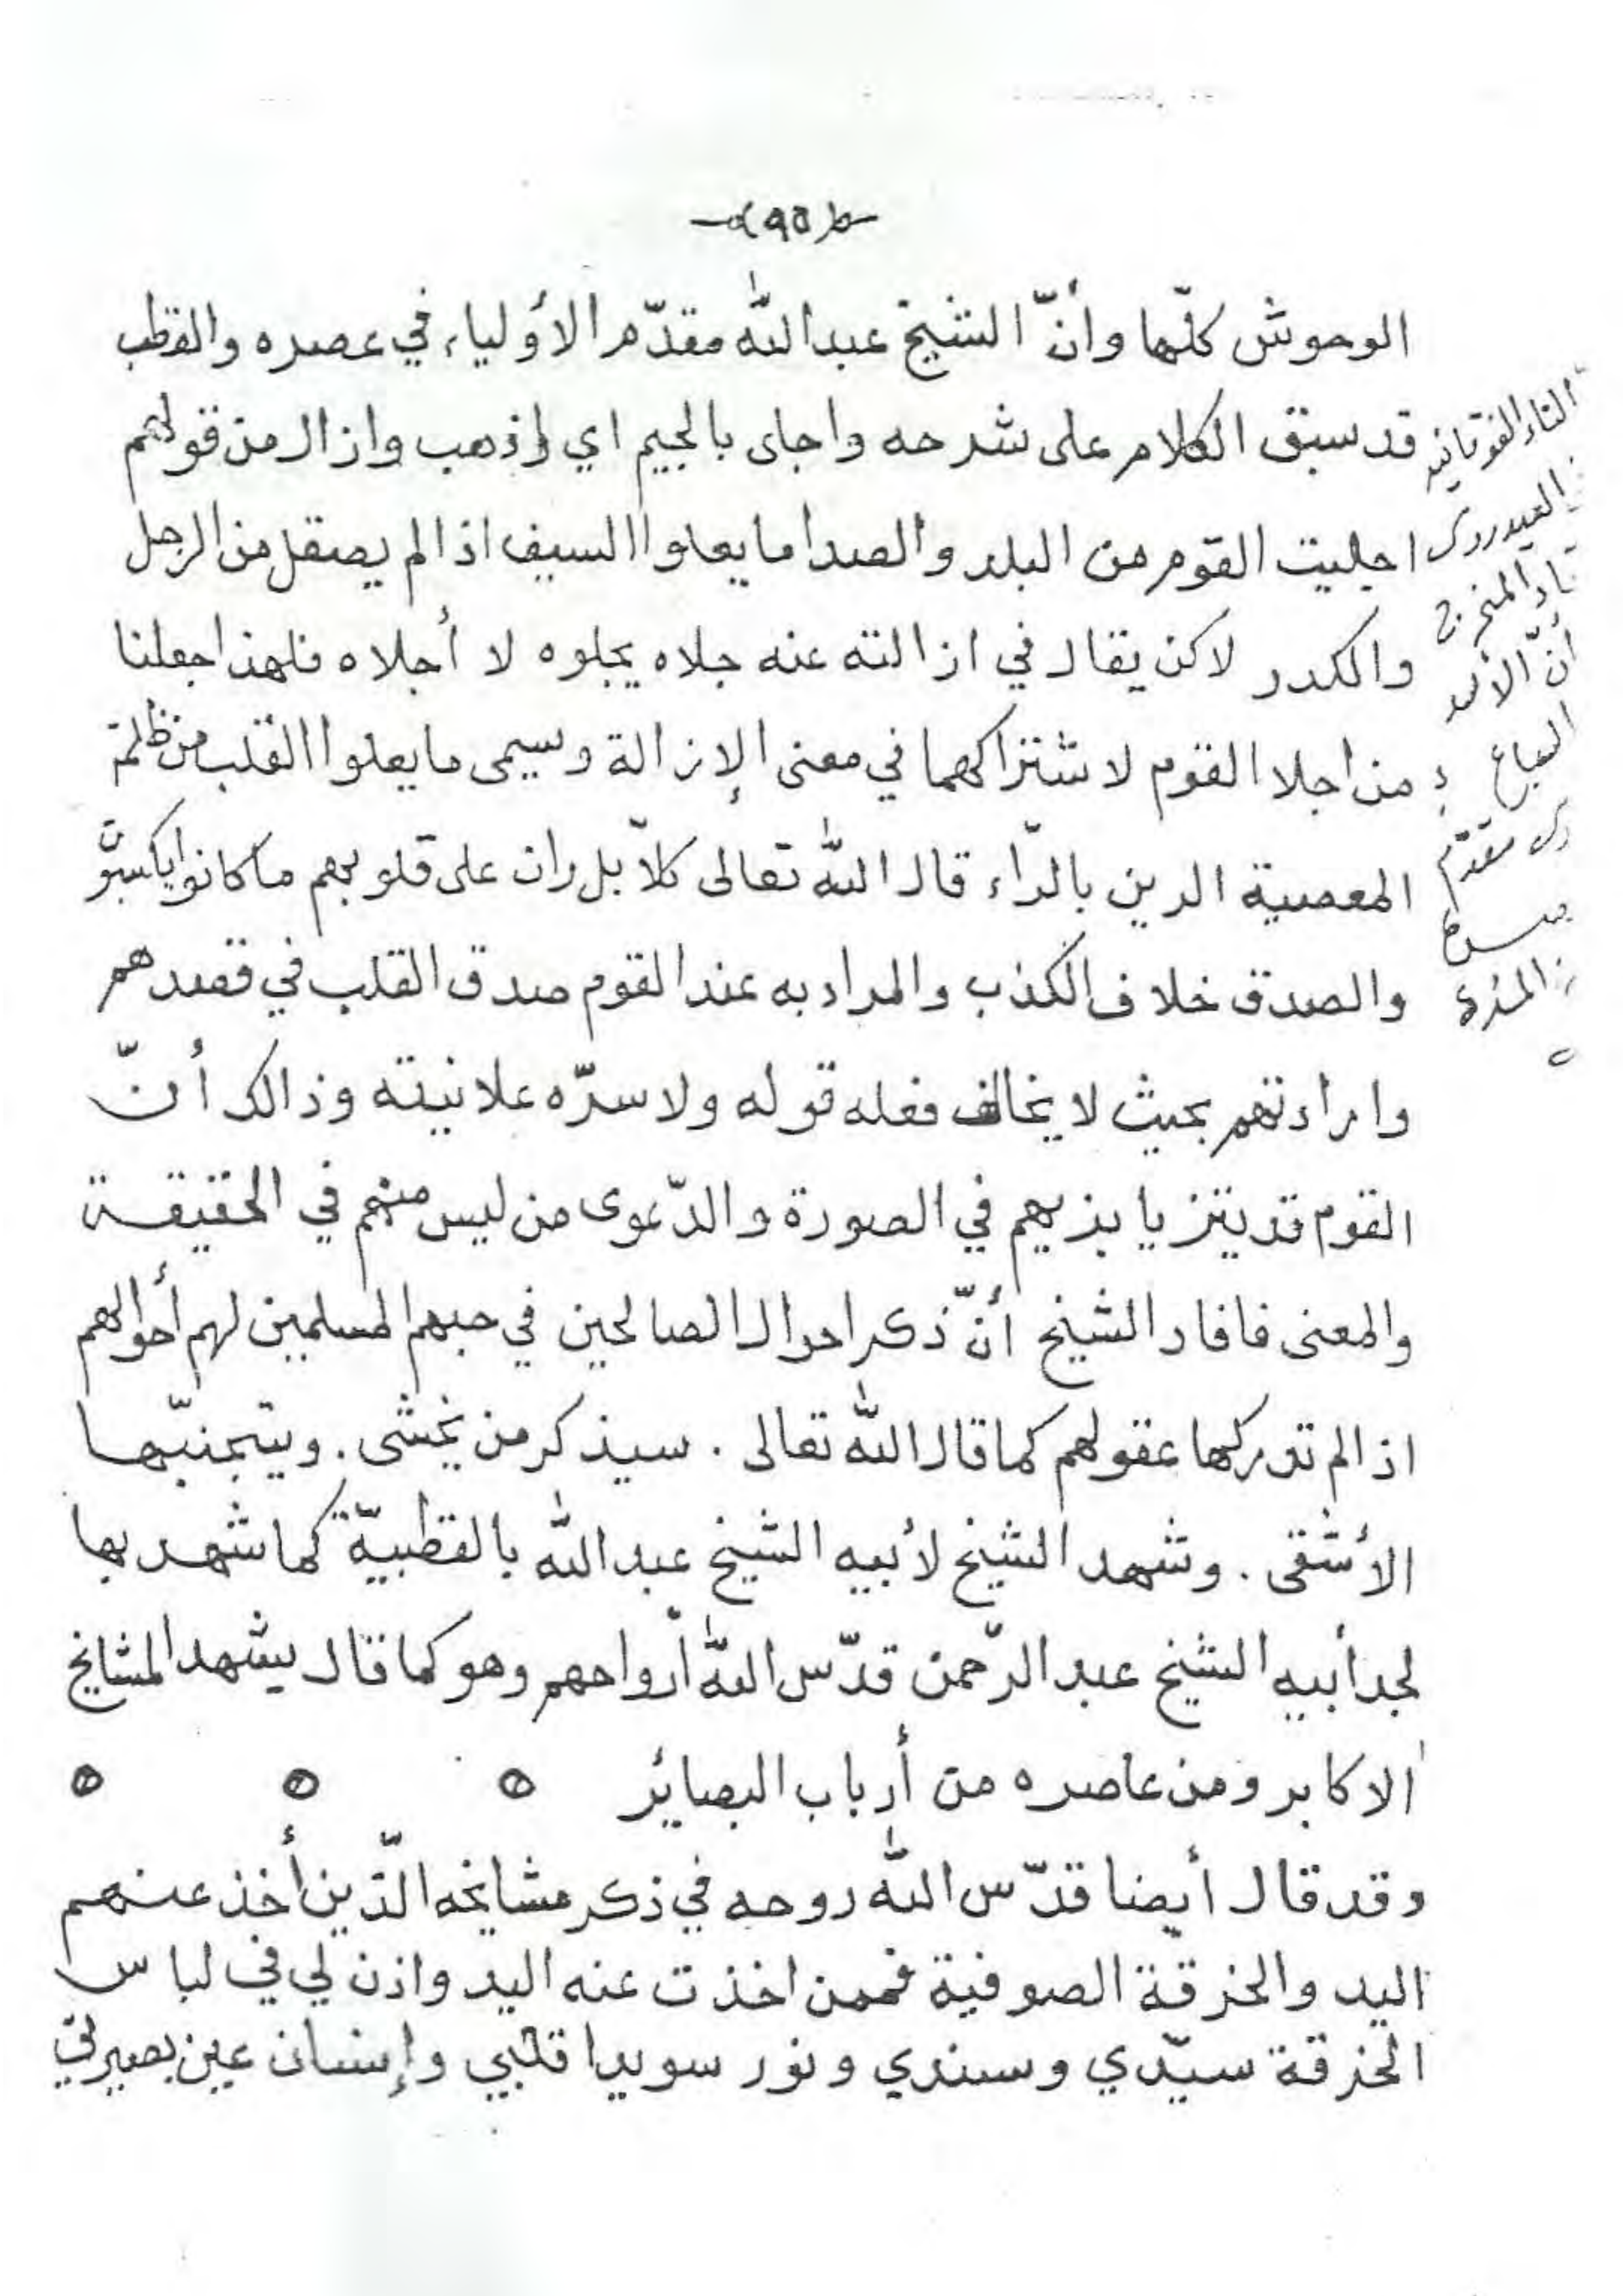 (٩٥)
الوحوش كلّها وأنّ الشيخ عبدالله مقدّم الأولياء في عصره والقطب
قد سبق الكلام على شرحه واجلى بالجيم اي اذهب وازال من قولهم
اجليت القوم من البلد والصدا ما يعلوا السيف اذا لم يصقل من الرجل
والكدر لاكن يقال في ازالته عنه جلاه يجلوه لا أجلاه فلهذا جعلنا
من اجلا القوم لاشتراكهما في معنى الإزالة وسيمى ما يعلوا القلب من ظلمة
المعصية الرين بالرّاء قال الله تعالى كلاّ بل ران على قلوبهم ما كانوا يكسبون
والصدق خلاف الكذب والمراد به عند القوم صدق القلب في قصدهم
وارادتهم بحيث لا يخالف فعله قوله ولا سرّه علانيته وذالك أنّ
القوم قد يتزيا بزيهم في الصورة والدّعوى من ليس منهم في الحقيقة
والمعنى فافاد الشيخ أنّ ذكر احوال الصالحين في حبهم المسلمين لهم أحوالهم
اذا لم تدركها عقولهم كما قال الله تعالى . سيذكر من يخشى . ويتجنبّها
الأشقى . وشهد الشيخ لأبيه الشيخ عبدالله بالقطبيّة كما شهد بها
لجد أبيه الشيخ عبد الرّحمن قدّس الله أرواحهم وهو كما قال يشهد المشايخ
الاكابر ومن عاصره من أرباب البصائر
وقد قال أيضا قدّس الله روحه في ذكر مشايخه الّذين أخذ عنهم
اليد والخرقة الصوفية فممن اخذت عنه اليد واذن لي في لباس
الخرقة سيّدي وسندي ونور سويدا قلبي وإنسان عين بصيرتي
التاء الفوقانيه
العيدروس
أنّ الأسد
السباع
مقدّم